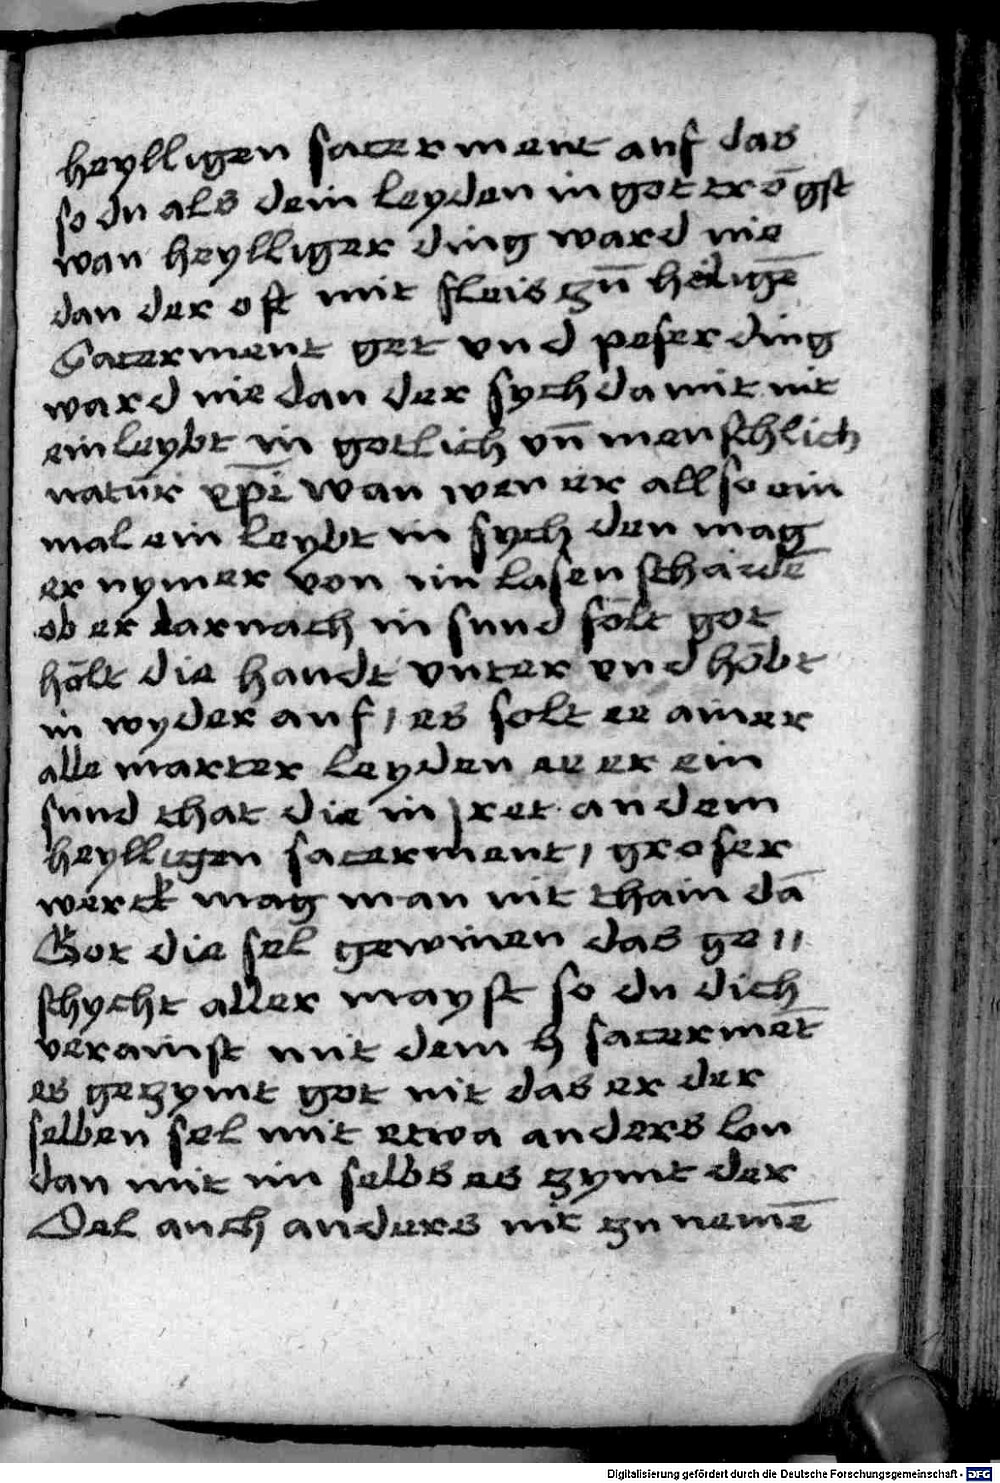 heylligen sacerment auf das
so du als dein leyden in got trȏgst
wan heylliger ding ward nie
dan der oft mit fleis zū heiligē
Sacerment get vnd peser ding
ward nie dan der sych da mit nit
ein leybt in gotlich vn̄ menschlich
natūr xp̄i wan wen er all so ein
mal ein leybt in sych den mag
er nymer von im lasen schaidē
ob er darnach in sund sōlt got
hōlt die handt vnter vnd hōbt
in wyder auf / es solt ee ainer
alle marter leyden ee er ein
sund that die in iret an dem
heylligen sacerment / groser
werck mag man nit thain dā
Got die sel gewinen das ge //
schycht aller mayst so du dich
verainst mit dem h sacermēt
es gezymt got nit das er der
selben sel mit etwa anders lon
dan mit im selbs es zymt der
Sel auch anders nit zu nemē
Digitalisierung gefördert durch die Deutsche Forschungsgemeinschaft - DFG